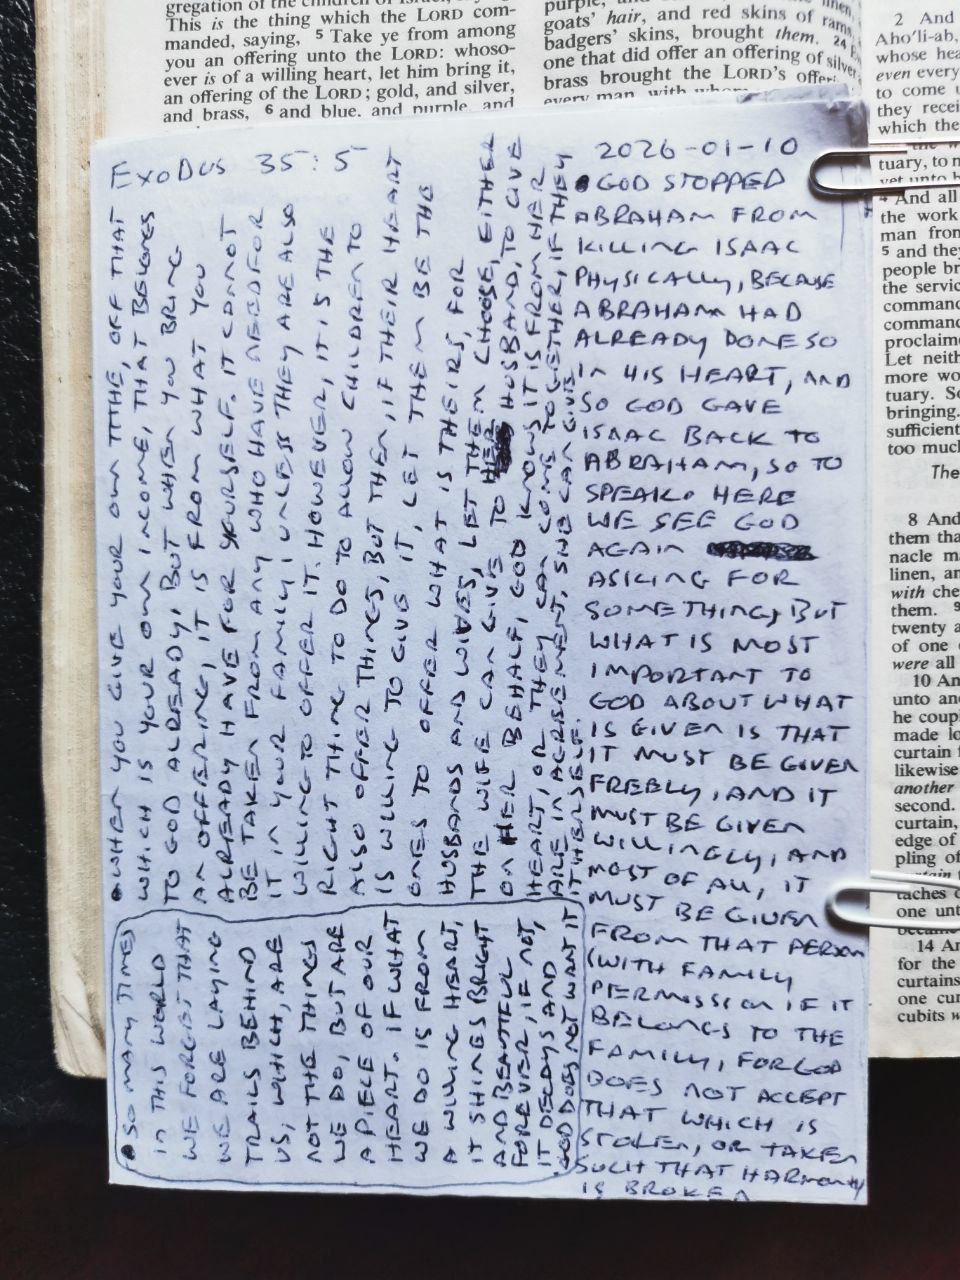 gregation of the children of Israel, saying,
This is the thing which the LORD com-
manded, saying, 5 Take ye from among
you an offering unto the LORD: whoso-
ever is of a willing heart, let him bring it,
an offering of the LORD; gold, and silver,
and brass, 6 and blue, and purple, and
purple, and linen,
goats' hair, and red skins of rams,
badgers' skins, brought them. 24
one that did offer an offering of silver
brass brought the LORD's
every man, with whom
2 And
Aho'li-ab,
whose hea
even every
to come u
they recei
which the
tuary, to m
yet unto h
4 And all
the work
man from
5 and they
people br
the servic
command
command
proclaime
Let neith
more wo
tuary. So
bringing.
sufficient
too much
The
8 And
them tha
nacle ma
linen, an
with che
them. 9
twenty a
of one c
were all
10 An
unto ano
he coupl
made lo
curtain f
likewise
another
second.
curtain,
edge of
pling of
taches o
one unt
became
14 An
for the
curtains
one cur
cubits w
EXODUS 35:5
2026-01-10
• GOD STOPPED
ABRAHAM FROM
KILLING ISAAC
PHYSICALLY, BECAUSE
ABRAHAM HAD
ALREADY DONE SO
IN HIS HEART, AND
SO GOD GAVE
ISAAC BACK TO
ABRAHAM, SO TO
SPEAK. HERE
WE SEE GOD
AGAIN
ASKING FOR
SOMETHING, BUT
WHAT IS MOST
IMPORTANT TO
GOD ABOUT WHAT
IS GIVEN IS THAT
IT MUST BE GIVEN
FREELY, AND IT
MUST BE GIVEN
WILLINGLY, AND
MOST OF ALL, IT
MUST BE GIVEN
FROM THAT PERSON
(WITH FAMILY
PERMISSION IF IT
BELONGS TO THE
FAMILY, FOR GOD
DOES NOT ACCEPT
THAT WHICH IS
STOLEN, OR TAKEN
SUCH THAT HARMONY
IS BROKEN
• WHEN YOU GIVE YOUR OWN TITHE, OFF THAT
WHICH IS YOUR OWN INCOME, THAT BELONGS
TO GOD ALREADY, BUT WHEN YOU BRING
AN OFFERING, IT IS FROM WHAT YOU
ALREADY HAVE FOR YOURSELF. IT CANNOT
BE TAKEN FROM ANY WHO HAVE NEED FOR
IT IN YOUR FAMILY UNLESS THEY ARE ALSO
WILLING TO OFFER IT. HOWEVER, IT IS THE
RIGHT THING TO DO TO ALLOW CHILDREN TO
ALSO OFFER THINGS, BUT THEN, IF THEIR HEART
IS WILLING TO GIVE IT, LET THEM BE THE
ONES TO OFFER WHAT IS THEIRS, FOR
HUSBANDS AND WIVES, LET THEM CHOOSE, EITHER
THE WIFE CAN GIVE TO HER HUSBAND, TO GIVE
ON HER BEHALF, GOD KNOWS IT IS FROM HER
HEART, OR THEY CAN COME TOGETHER, IF THEY
ARE IN AGREEMENT, SHE CAN GIVE
IT HERSELF.
• SO MANY TIMES
IN THIS WORLD
WE FORGET THAT
WE ARE LAYING
TRAILS BEHIND
US, WHICH, ARE
NOT THE THINGS
WE DO, BUT ARE
A PIECE OF OUR
HEART. IF WHAT
WE DO IS FROM
A WILLING HEART,
IT SHINES BRIGHT
AND BEAUTIFUL
FOREVER, IF NOT,
IT DECAYS AND
GOD DOES NOT WANT IT